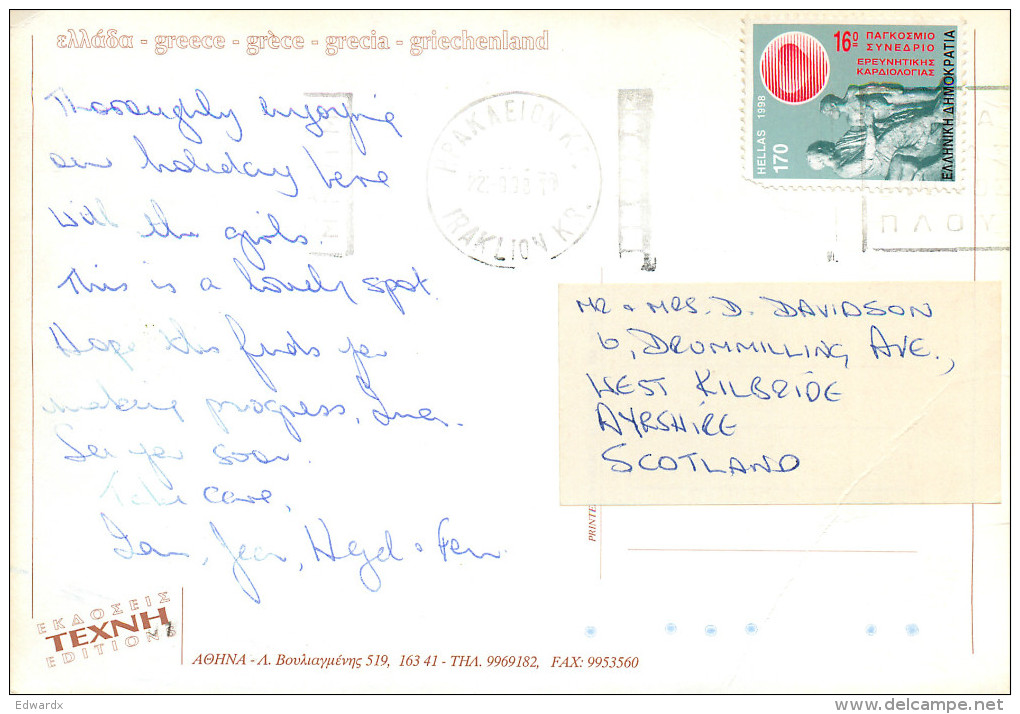 ελλάδα - greece - grèce - grecia - griechenland
Thoroughly enjoying
our holiday here
with the girls.
This is a lovely spot.
Hope this finds you
making progress,
See you soon.
Take care,
Ian, Jean,
ΕΚΔΟΣΕΙΣ
ΤΕΧΝΗ
EDITIONS
ΑΘΗΝΑ - Λ. Βουλιαγμένης 519, 163 41 - ΤΗΛ. 9969182, FAX: 9953560
ΗΡΑΚΛΕΙΟΝ ΚΡ.
IRAKLION KR.
16º ΠΑΓΚΟΣΜΙΟ
ΣΥΝΕΔΡΙΟ
ΕΡΕΥΝΗΤΙΚΗΣ
ΚΑΡΔΙΟΛΟΓΙΑΣ
HELLAS 1998
170
ΕΛΛΗΝΙΚΗ ΔΗΜΟΚΡΑΤΙΑ
ΠΛΟΥ
MR & MRS. D. DAVIDSON
6, DRUMMILLING AVE.,
WEST KILBRIDE
AYRSHIRE
SCOTLAND
PRINTE
Edwardx
www.delcampe.net